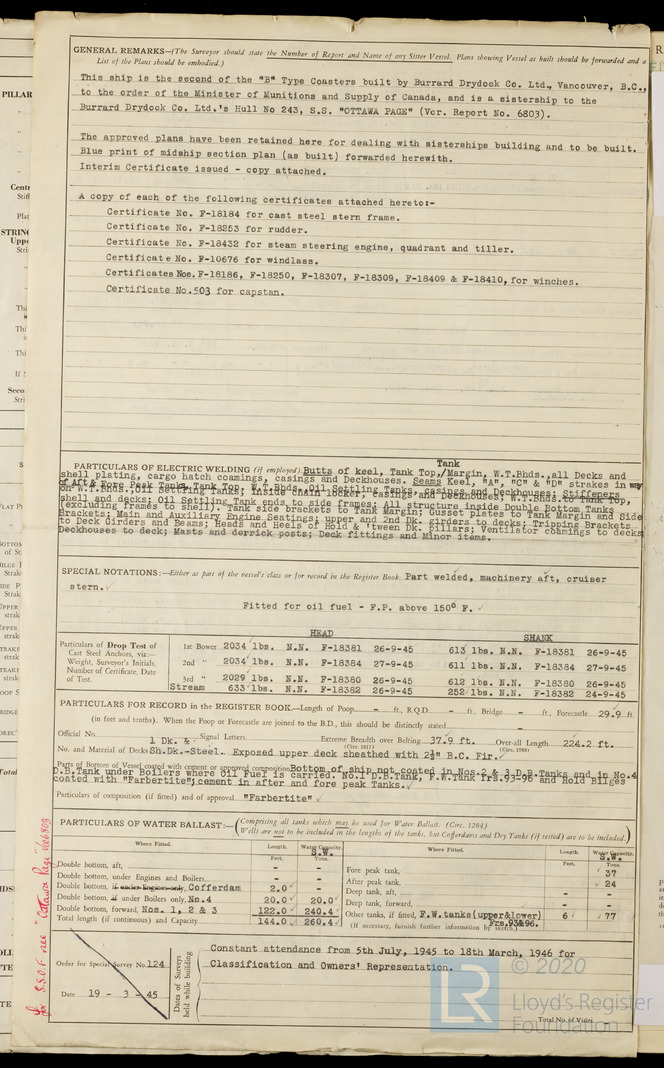 GENERAL REMARKS—(The Surveyor should state the Number of Report and Name of any Sister Vessel. Plans showing Vessel as built should be forwarded and a
List of the Plans should be embodied.)
This ship is the second of the "B" Type Coasters built by Burrard Drydock Co. Ltd., Vancouver, B.C.,
to the order of the Minister of Munitions and Supply of Canada, and is a sistership to the
Burrard Drydock Co. Ltd.'s Hull No 243, S.S. "OTTAWA PAGE" (Vcr. Report No. 6803).
The approved plans have been retained here for dealing with sisterships building and to be built.
Blue print of midship section plan (as built) forwarded herewith.
Interim Certificate issued - copy attached.
A copy of each of the following certificates attached hereto:-
Certificate No. F-18184 for cast steel stern frame.
Certificate No. F-18253 for rudder.
Certificate No. F-18432 for steam steering engine, quadrant and tiller.
Certificate No. F-10676 for windlass.
Certificates Nos. F-18186, F-18250, F-18307, F-18309, F-18409 & F-18410, for winches.
Certificate No.503 for capstan.
Tank
PARTICULARS OF ELECTRIC WELDING (if employed) Butts of keel, Tank Top,/Margin, W.T.Bhds.,all Decks and
shell plating, cargo hatch coamings, casings and Deckhouses. Seams Keel, "A", "C" & "D" strakes in way
of Aft & Fore Peak Tanks, Tank Top, W.T.Bhds, Oil Settling Tanks, casings and Deckhouses; Stiffeners
on W.T.Bhds.,Oil Settling Tanks; inside chain locker, casings and Deckhouses; W.T.Bhds.to Tank Top,
shell and decks; Oil Settling Tank ends to side frames; All structure inside Double Bottom Tanks
(excluding frames to shell). Tank side brackets to Tank Margin; Gusset plates to Tank Margin and Side
Brackets; Main and Auxiliary Engine Seatings; upper and 2nd Dk. girders to decks; Tripping Brackets
to Deck Girders and Beams; Heads and Heels of Hold & 'tween Dk. pillars; Ventilator coamings to decks;
Deckhouses to deck; Masts and derrick posts; Deck fittings and Minor items.
SPECIAL NOTATIONS:—Either as part of the vessel's class or for record in the Register Book Part welded, machinery aft, cruiser
stern.
Fitted for oil fuel - F.P. above 150° F.
HEAD SHANK
Particulars of Drop Test of
Cast Steel Anchors, viz:—
Weight, Surveyor's Initials,
Number of Certificate, Date
of Test.
1st Bower 2034 lbs. N.N. F-18381 26-9-45 613 lbs. N.N. F-18381 26-9-45
2nd " 2034 lbs. N.N. F-18384 27-9-45 611 lbs. N.N. F-18384 27-9-45
3rd " 2029 lbs. N.N. F-18380 26-9-45 612 lbs. N.N. F-18380 26-9-45
Stream 633 lbs. N.N. F-18382 26-9-45 252 lbs. N.N. F-18382 24-9-45
PARTICULARS FOR RECORD in the REGISTER BOOK.—Length of Poop - ft., R.Q.D. - ft., Bridge - ft., Forecastle 29.9 ft.
(in feet and tenths). When the Poop or Forecastle are joined to the B.D., this should be distinctly stated
Official No. Signal Letters Extreme Breadth over Belting 37.9 ft. Over-all Length 224.2 ft.
(Circ. 1811) (Circ. 1988)
1 Dk. &
No. and Material of Decks Sh.Dk.-Steel. Exposed upper deck sheathed with 2½" B.C. Fir.
Parts of Bottom of Vessel coated with cement or approved composition Bottom of ship not coated in Nos.2 & 3 D.B.Tanks and in No.4
D.B.Tank under Boilers where Oil Fuel is carried. No.1 D.B.Tank, F.W.Tank Frs.93-96 and Hold Bilges
coated with "Farbertite";cement in after and fore peak Tanks.
Particulars of composition (if fitted) and of approval "Farbertite"
PARTICULARS OF WATER BALLAST:—(Comprising all tanks which may be used for Water Ballast. (Circ. 1284)
Wells are not to be included in the lengths of the tanks, but Cofferdams and Dry Tanks (if tested) are to be included.)
Where Fitted. Length. Water Capacity. Where Fitted. Length. Water Capacity.
Feet. S.W. Tons. Feet. S.W. Tons.
Double bottom, aft, - - Fore peak tank, 37
Double bottom, under Engines and Boilers - - After peak tank, 24
Double bottom, if under Engines only, Cofferdam 2.0 - Deep tank, aft, - -
Double bottom, if under Boilers only, No.4 20.0 20.0 Deep tank, forward, - -
Double bottom, forward, Nos. 1, 2 & 3 122.0 240.4 Other tanks, if fitted, F.W.tanks(upper&lower) 6 77
Total length (if continuous) and Capacity 144.0 260.4 (If necessary, furnish further information by sketch.) Frs.93&96.
Order for Special Survey No. 124
Date 19 - 3 - 45
Dates of Surveys
held while building
Constant attendance from 5th July, 1945 to 18th March, 1946 for
Classification and Owners' Representation.
Total No. of Visits -
for S.S.O.F. see "Ottawa Page"
© 2020
LR
Lloyd's Register
Foundation